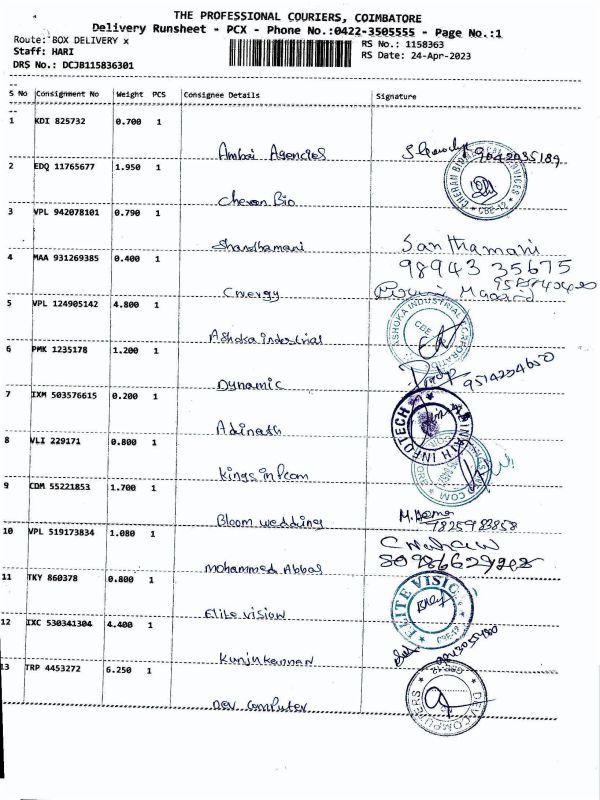 THE PROFESSIONAL COURIERS, COIMBATORE
Delivery Runsheet - PCX - Phone No.:0422-3505555 - Page No.:1
Route: BOX DELIVERY x
RS No.: 1158363
Staff: HARI
RS Date: 24-Apr-2023
DRS No.: DCJB115836301
S No Consignment No Weight PCS Consignee Details Signature
1 KDI 825732 0.700 1
Ambai Agencies 9042035189
2 EDQ 11765677 1.950 1
Cheran Bio
CBE-12
3 VPL 942078101 0.790 1
Shandhamani Santhamani
98943 35675
4 MAA 931269385 0.400 1
Cnergy
5 VPL 124905142 4.800 1
Ashoka industrial
ASHOKA INDUSTRIAL CORPORATION
CBE
6 PMK 1235178 1.200 1
Dynamic
7 IXM 503576615 0.200 1
Adinath
ADINATH INFOTECH
8 VLI 229171 0.800 1
Kings infcom
9 CDM 55221853 1.700 1
Bloom wedding
7825983858
10 VPL 519173834 1.080 1
Mohammed Abbas
11 TKY 860378 0.800 1
Elite vision
ELITE VISION
CBE-12
12 IXC 530341304 4.400 1
Kunjukannan
13 TRP 4453272 6.250 1
Dev Computer
DEV COMPUTERS